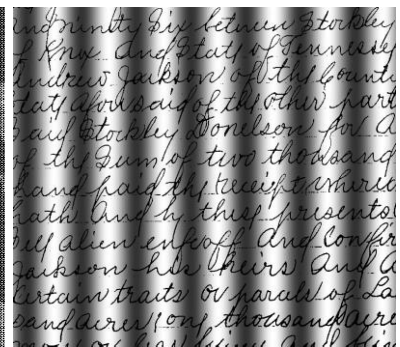 and ninety Six between Stockley
of Knox And State of Tennessee
Andrew Jackson of the County
State aforesaid of the other part
Said Stockley Donelson for A
of the Sum of two thousand
hand paid the receipt wherso
hath And by these presents
Sell alien enfeoff And Confir
Jackson his heirs And A
Certain traits or parals of La
sand acres, one thousand acre
more or less